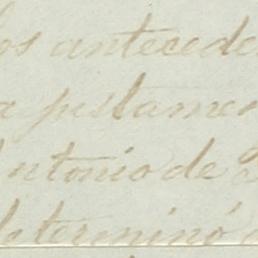 los antecede
a justamen
Antonio de
determinó